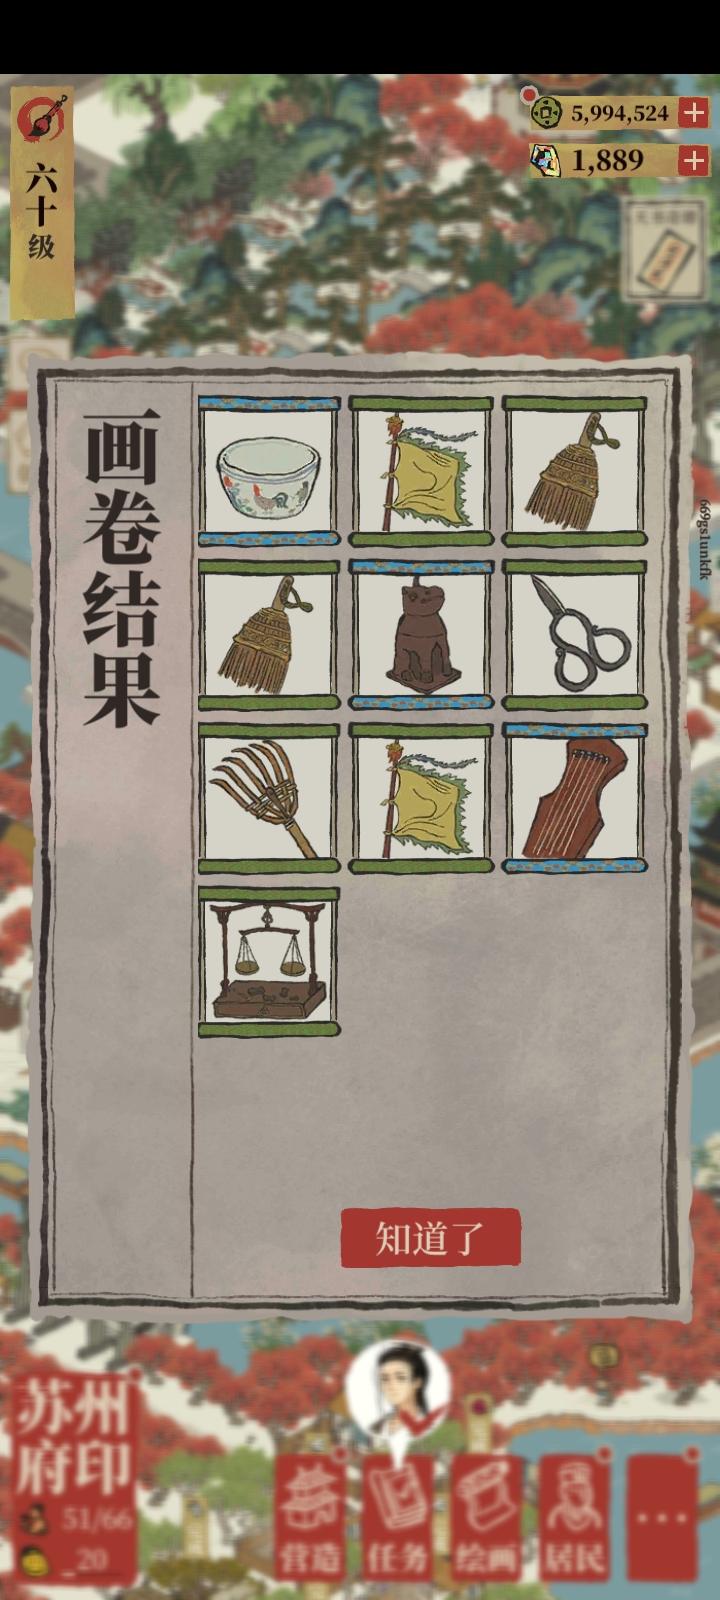 六十级
5,994,524
1,889
画卷结果
669gs1unkfk
知道了
苏州
府印
51/66
_20
营造
任务
绘画
居民
...